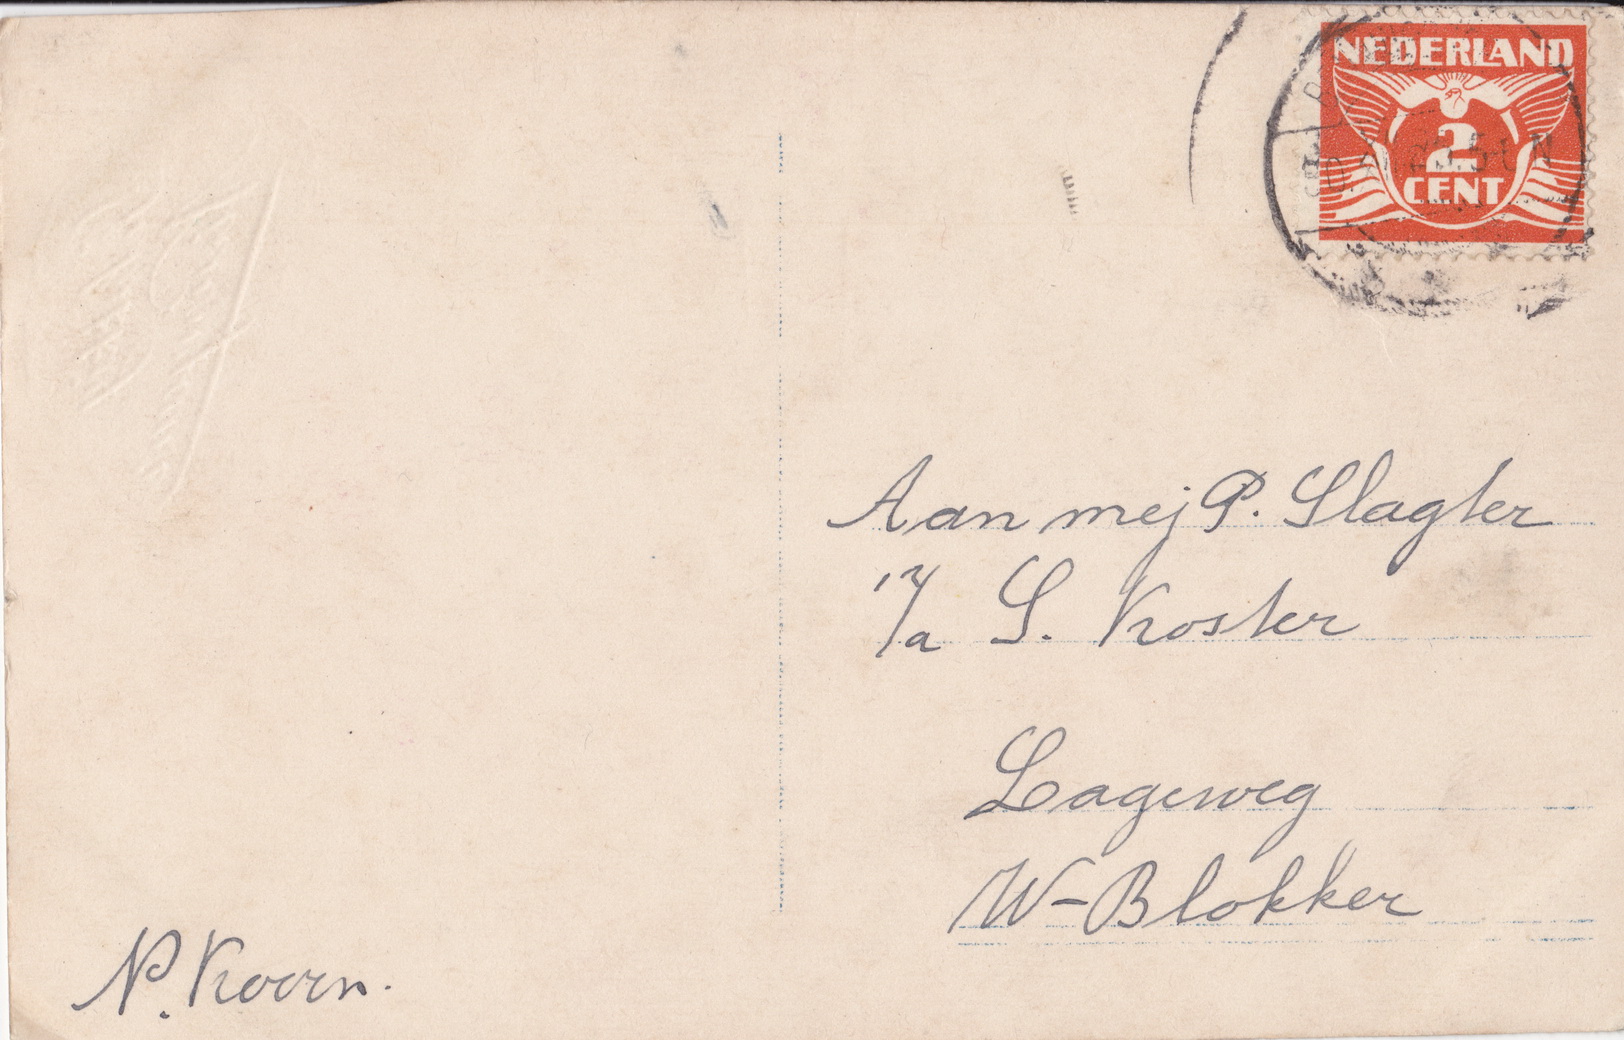 NEDERLAND
2
CENT
Aan mej P. Slagter
p/a S. Koster
Lageweg
W-Blokker
N. Koorn.